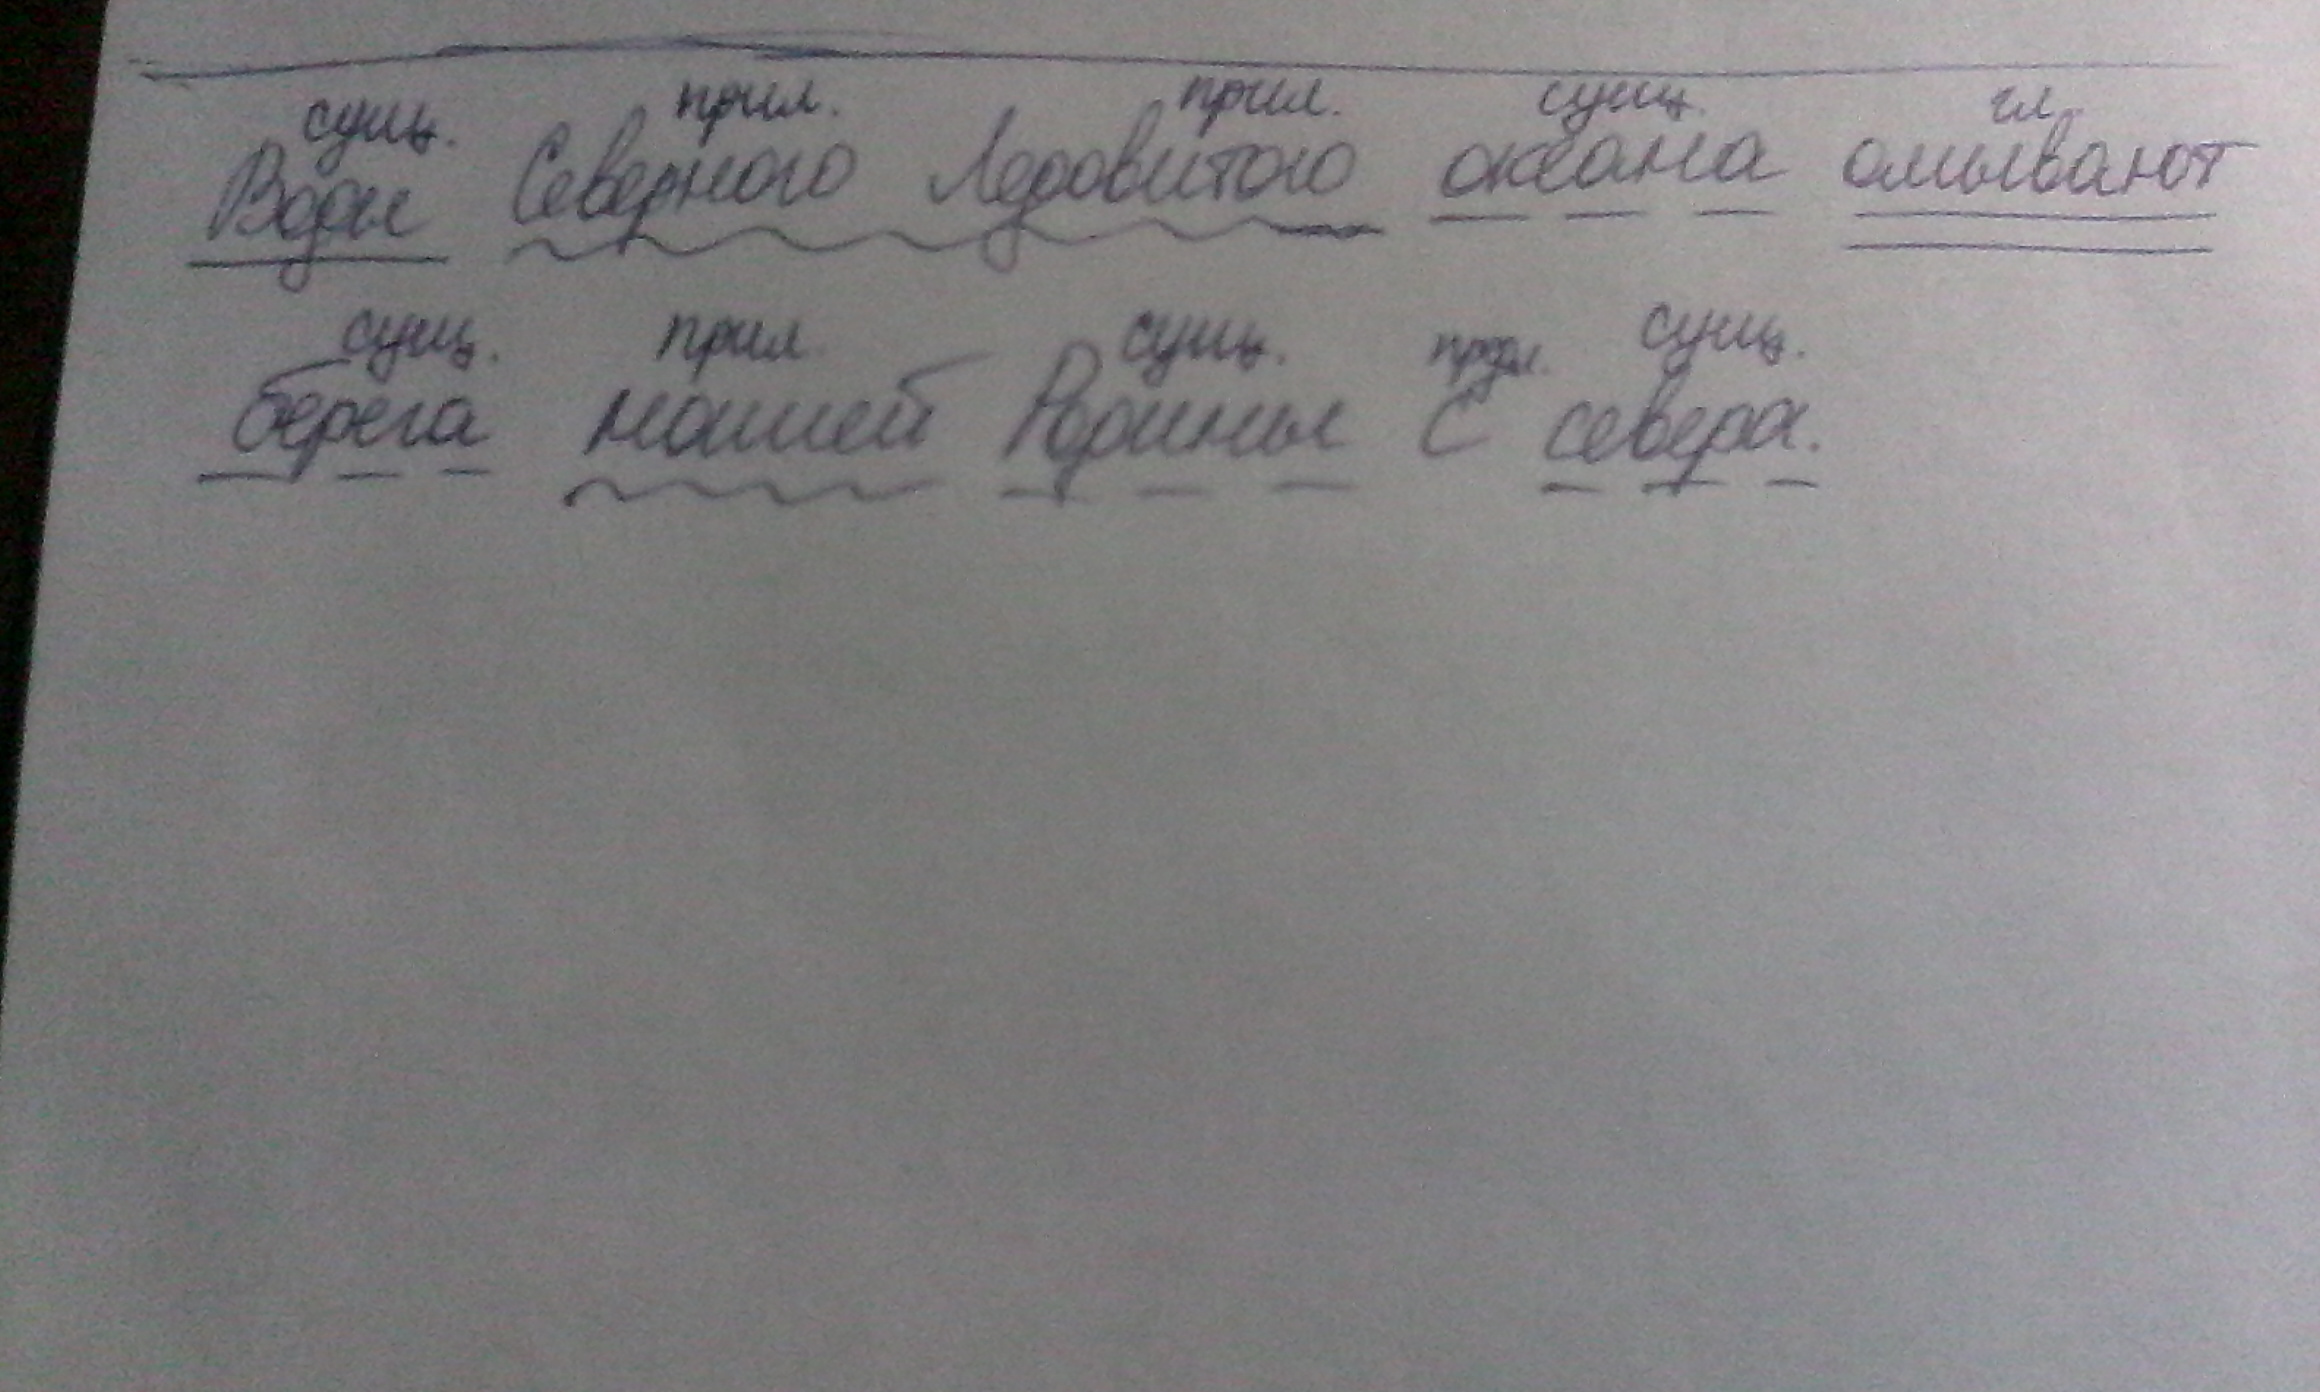 сущ. прил. прил. сущ. гл.
Воды Северного Ледовитого океана омывают
сущ. прил. сущ. сущ.
берега нашей Родины с севера.